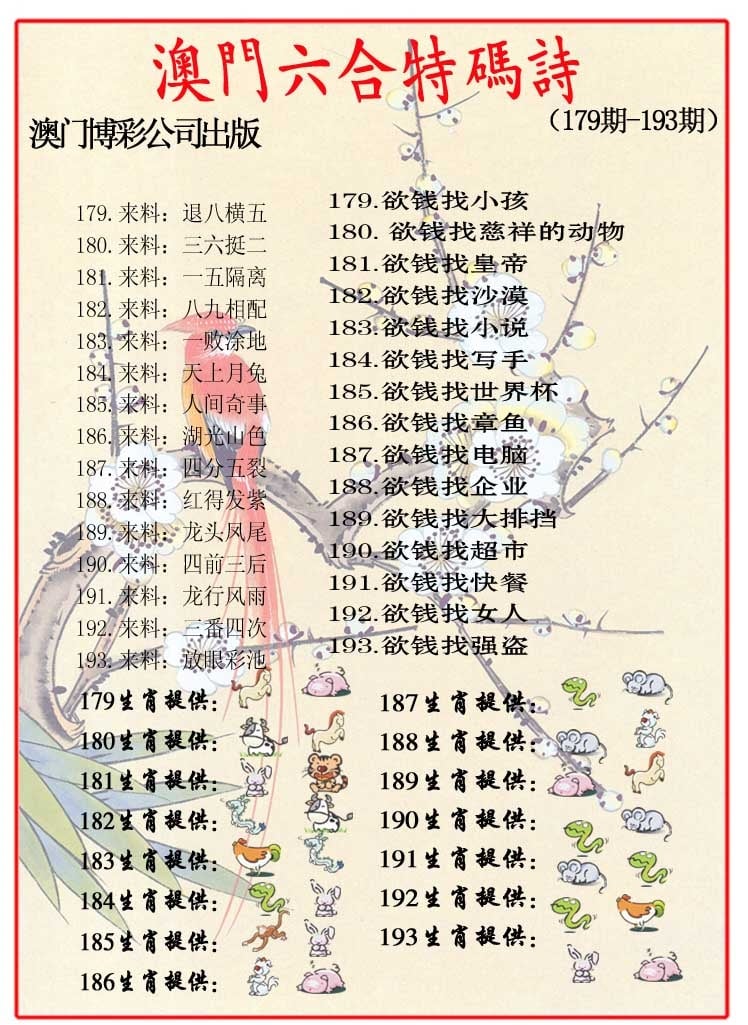 澳門六合特碼詩
澳门博彩公司出版
（179期-193期）
179.来料：退八横五
180.来料：三六挺二
181.来料：一五隔离
182.来料：八九相配
183.来料：一败涂地
184.来料：天上月兔
185.来料：人间奇事
186.来料：湖光山色
187.来料：四分五裂
188.来料：红得发紫
189.来料：龙头风尾
190.来料：四前三后
191.来料：龙行风雨
192.来料：三番四次
193.来料：放眼彩池
179.欲钱找小孩
180. 欲钱找慈祥的动物
181.欲钱找皇帝
182.欲钱找沙漠
183.欲钱找小说
184.欲钱找写手
185.欲钱找世界杯
186.欲钱找章鱼
187.欲钱找电脑
188.欲钱找企业
189.欲钱找大排挡
190.欲钱找超市
191.欲钱找快餐
192.欲钱找女人
193.欲钱找强盗
179生肖提供：
180生肖提供：
181生肖提供：
182生肖提供：
183生肖提供：
184生肖提供：
185生肖提供：
186生肖提供：
187生肖提供：
188生肖提供：
189生肖提供：
190生肖提供：
191生肖提供：
192生肖提供：
193生肖提供：